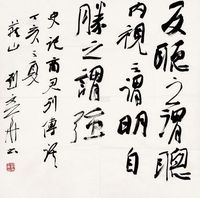 反聽之謂聰
内視之謂明自
勝之謂強
史记商君列傳語
丁亥之夏
山